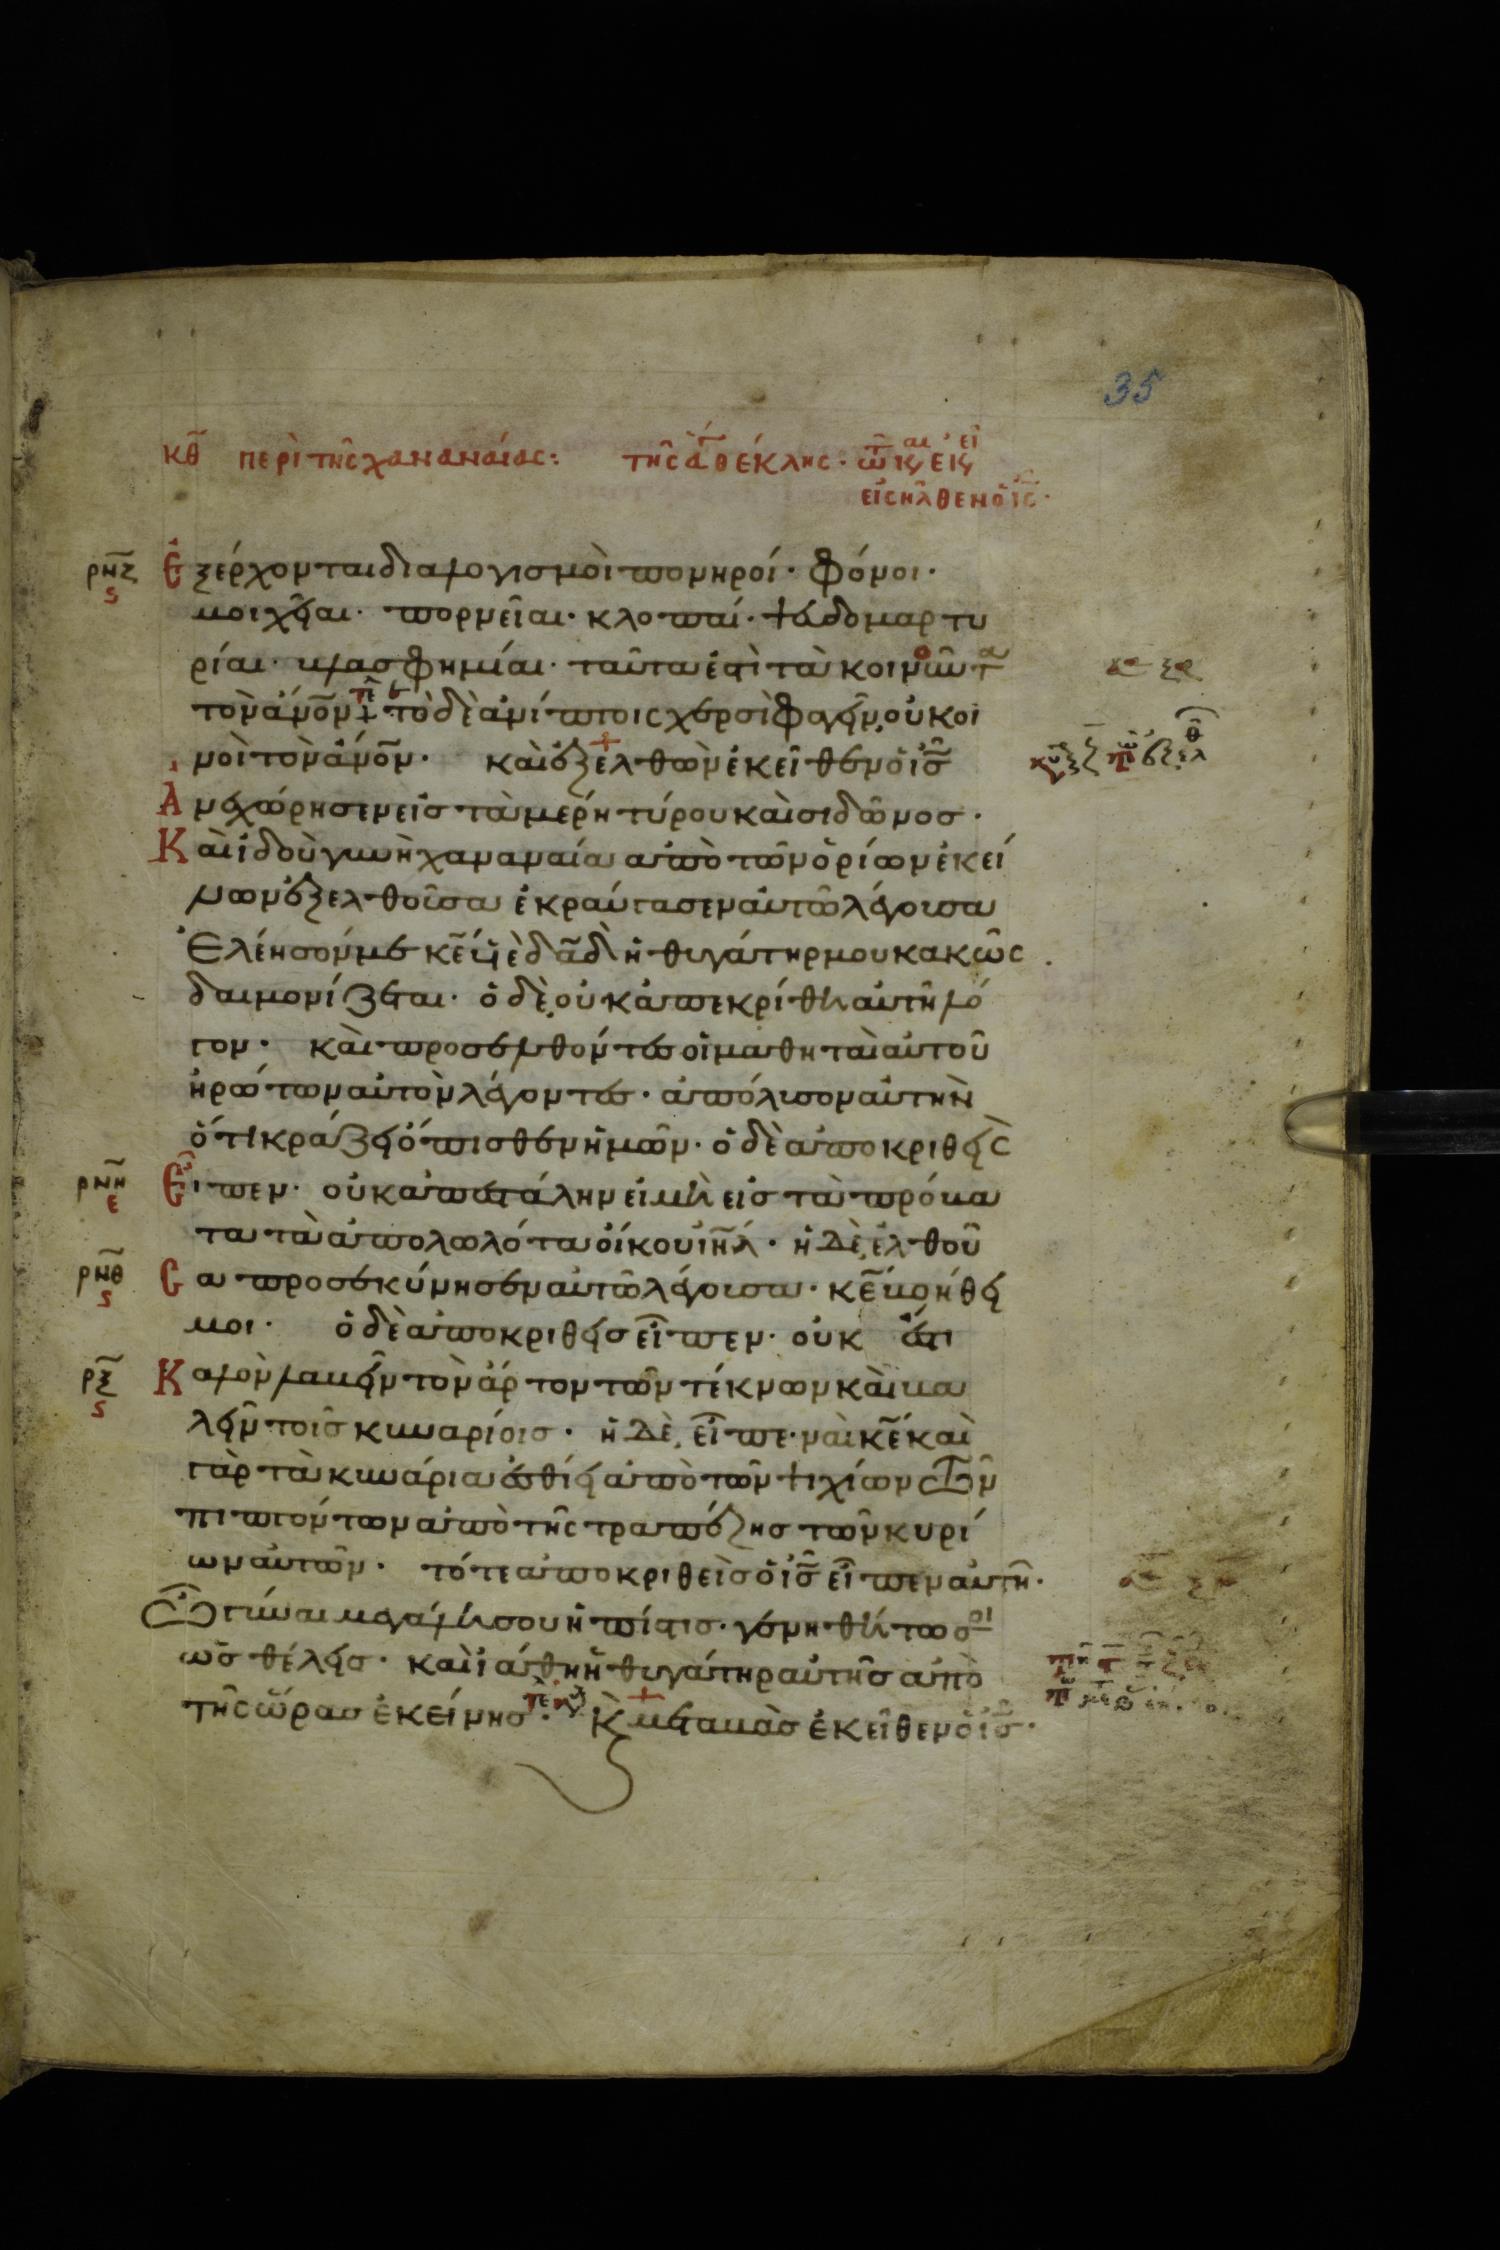 35
κθ περὶ τῆς χαναναίας: τῆς ἁγ θέκλης·
εἰσῆλθεν ὁ ις·
ρνζ Ἐξέρχονται διαλογισμοὶ πονηροί· φόνοι·
ς
μοιχεῖαι· πορνεῖαι· κλοπαί· ψευδομαρτυ
ρίαι· βλασφημίαι· ταῦτα ἐστὶ τὰ κοινοῦντα
τὸν ἄνον· τὸ δὲ ἀνίπτοις χερσὶ φαγεῖν, οὐ κοι
νοῖ τὸν ἄνον· καὶ ἐξελθὼν ἐκεῖθεν ὁ ις
Ἀνεχώρησεν εἰς τὰ μέρη τύρου καὶ σιδῶνος·
Καὶ ἰδοὺ γυνὴ χαναναία ἀπὸ τῶν ὁρίων ἐκεί
νων ἐξελθοῦσα ἐκραύγασεν αὐτῶ λέγουσα
Ἐλέησόν με κε υἱὲ δαδ ἡ θυγάτηρ μου κακῶς
δαιμονίζεται· ὁ δὲ, οὐκ ἀπεκρίθη αὐτῆ λό
γον· καὶ προσελθόντες οἱ μαθηταὶ αὐτοῦ
ἠρώτων αὐτὸν λέγοντες· ἀπόλυσον αὐτὴν
ὅτι κράζει ὄπισθεν ἡμῶν· ὁ δὲ ἀποκριθεὶς
ρνη Εἶπεν· οὐκ ἀπεστάλην εἰ μὴ εἰς τὰ πρόβα
ε
τα τὰ ἀπολωλότα οἴκου ιηλ· ἡ δὲ, ἐλθοῦ
ρνθ σα προσεκύνησεν αὐτῶ λέγουσα· κε βοήθει
ς
μοι· ὁ δὲ ἀποκριθεὶς εἶπεν· οὐκ ἔστι
ρξ Καλὸν λαβεῖν τὸν ἄρτον τῶν τέκνων καὶ βα
ς
λεῖν τοῖς κυναρίοις· ἡ δὲ, εἶπε· ναὶ κε καὶ
γὰρ τὰ κυνάρια ἐσθίει ἀπὸ τῶν ψιχίων τῶν
πιπτόντων ἀπὸ τῆς τραπέζης τῶν κυρί
ων αὐτῶν· τότε ἀποκριθεὶς ὁ ις εἶπεν αὐτῆ·
Ὦ γύναι μεγάλη σου ἡ πίστις· γενηθήτω σοι
ὡς θέλεις· καὶ ἰάθη ἡ θυγάτηρ αὐτῆς ἀπὸ
τῆς ὥρας ἐκείνης· Κ μεταβὰς ἐκεῖθεν ὁ ις·